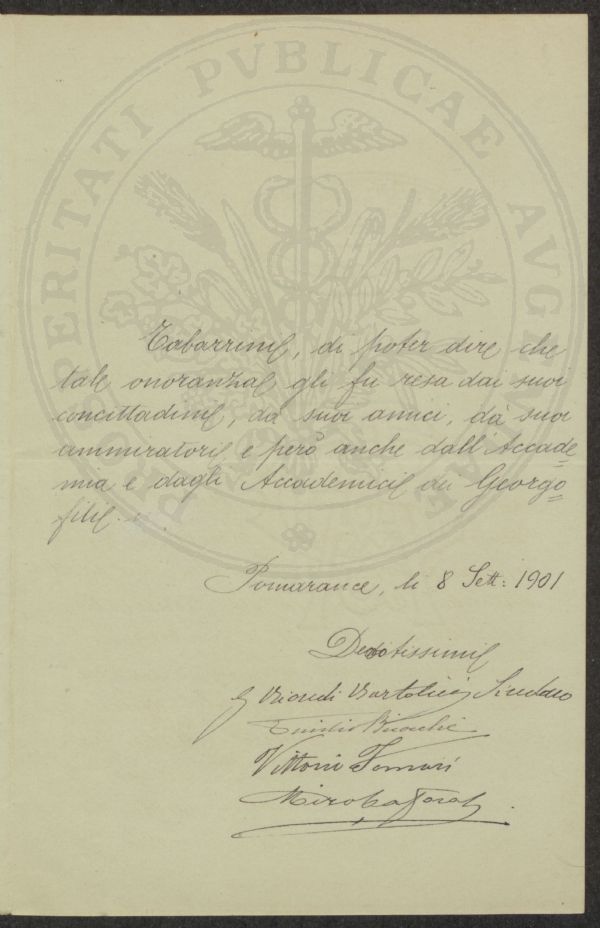 PROSPERITATI PVBLICAE AVGENDAE
Tabarrini, di poter dire che
tale onoranza gli fu resa dai suoi
concittadini, da suoi amici, da suoi
ammiratori e però anche dall'Accade=
mia e dagli Accademici dei Georgo=
fili.
Pomarance, li 8 Sett: 1901
Devotissimi
Bartolini Sindaco
Vittorio